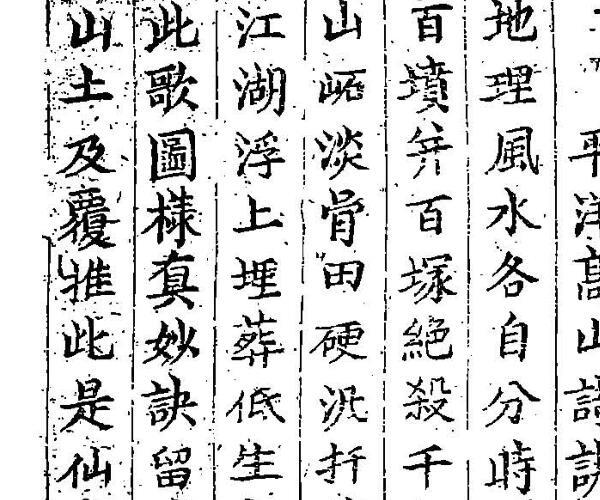 平洋高山
地理風水各自分時
百墳并百塚絕殺千
山淡骨田硬況扦
江湖浮上埋葬低生
此歌圖樣真妙訣留
山土及覆推此是仙